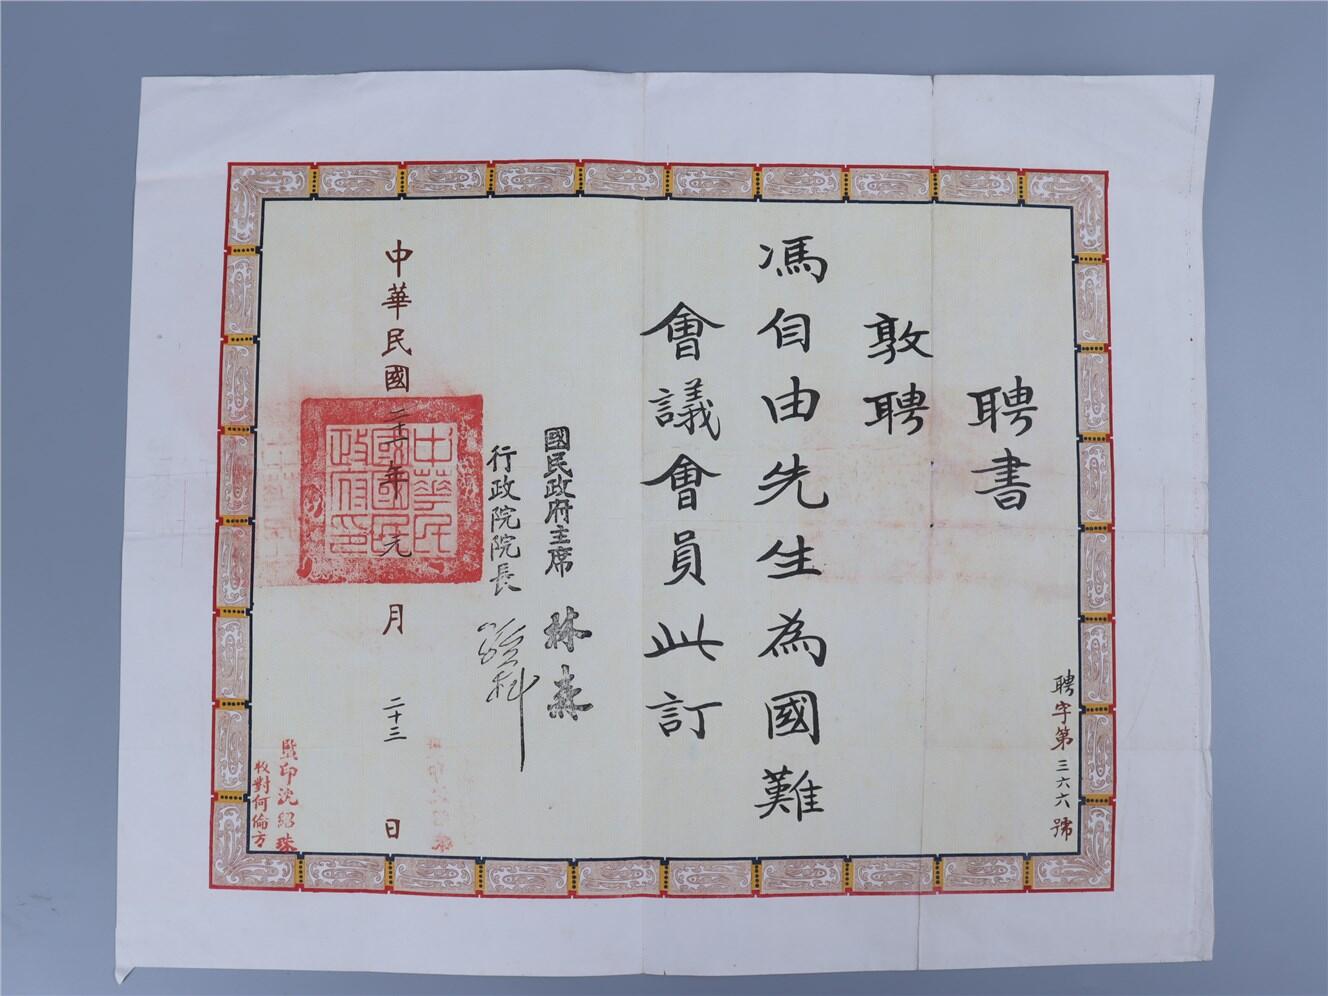 聘書
聘字第三六六號
敦聘
馮自由先生為國難
會議會員此訂
國民政府主席 林森
行政院院長 孫科
中華民國二十一年元月二十三日
中華民國國民政府印
監印沈紹珠
校對何倫方